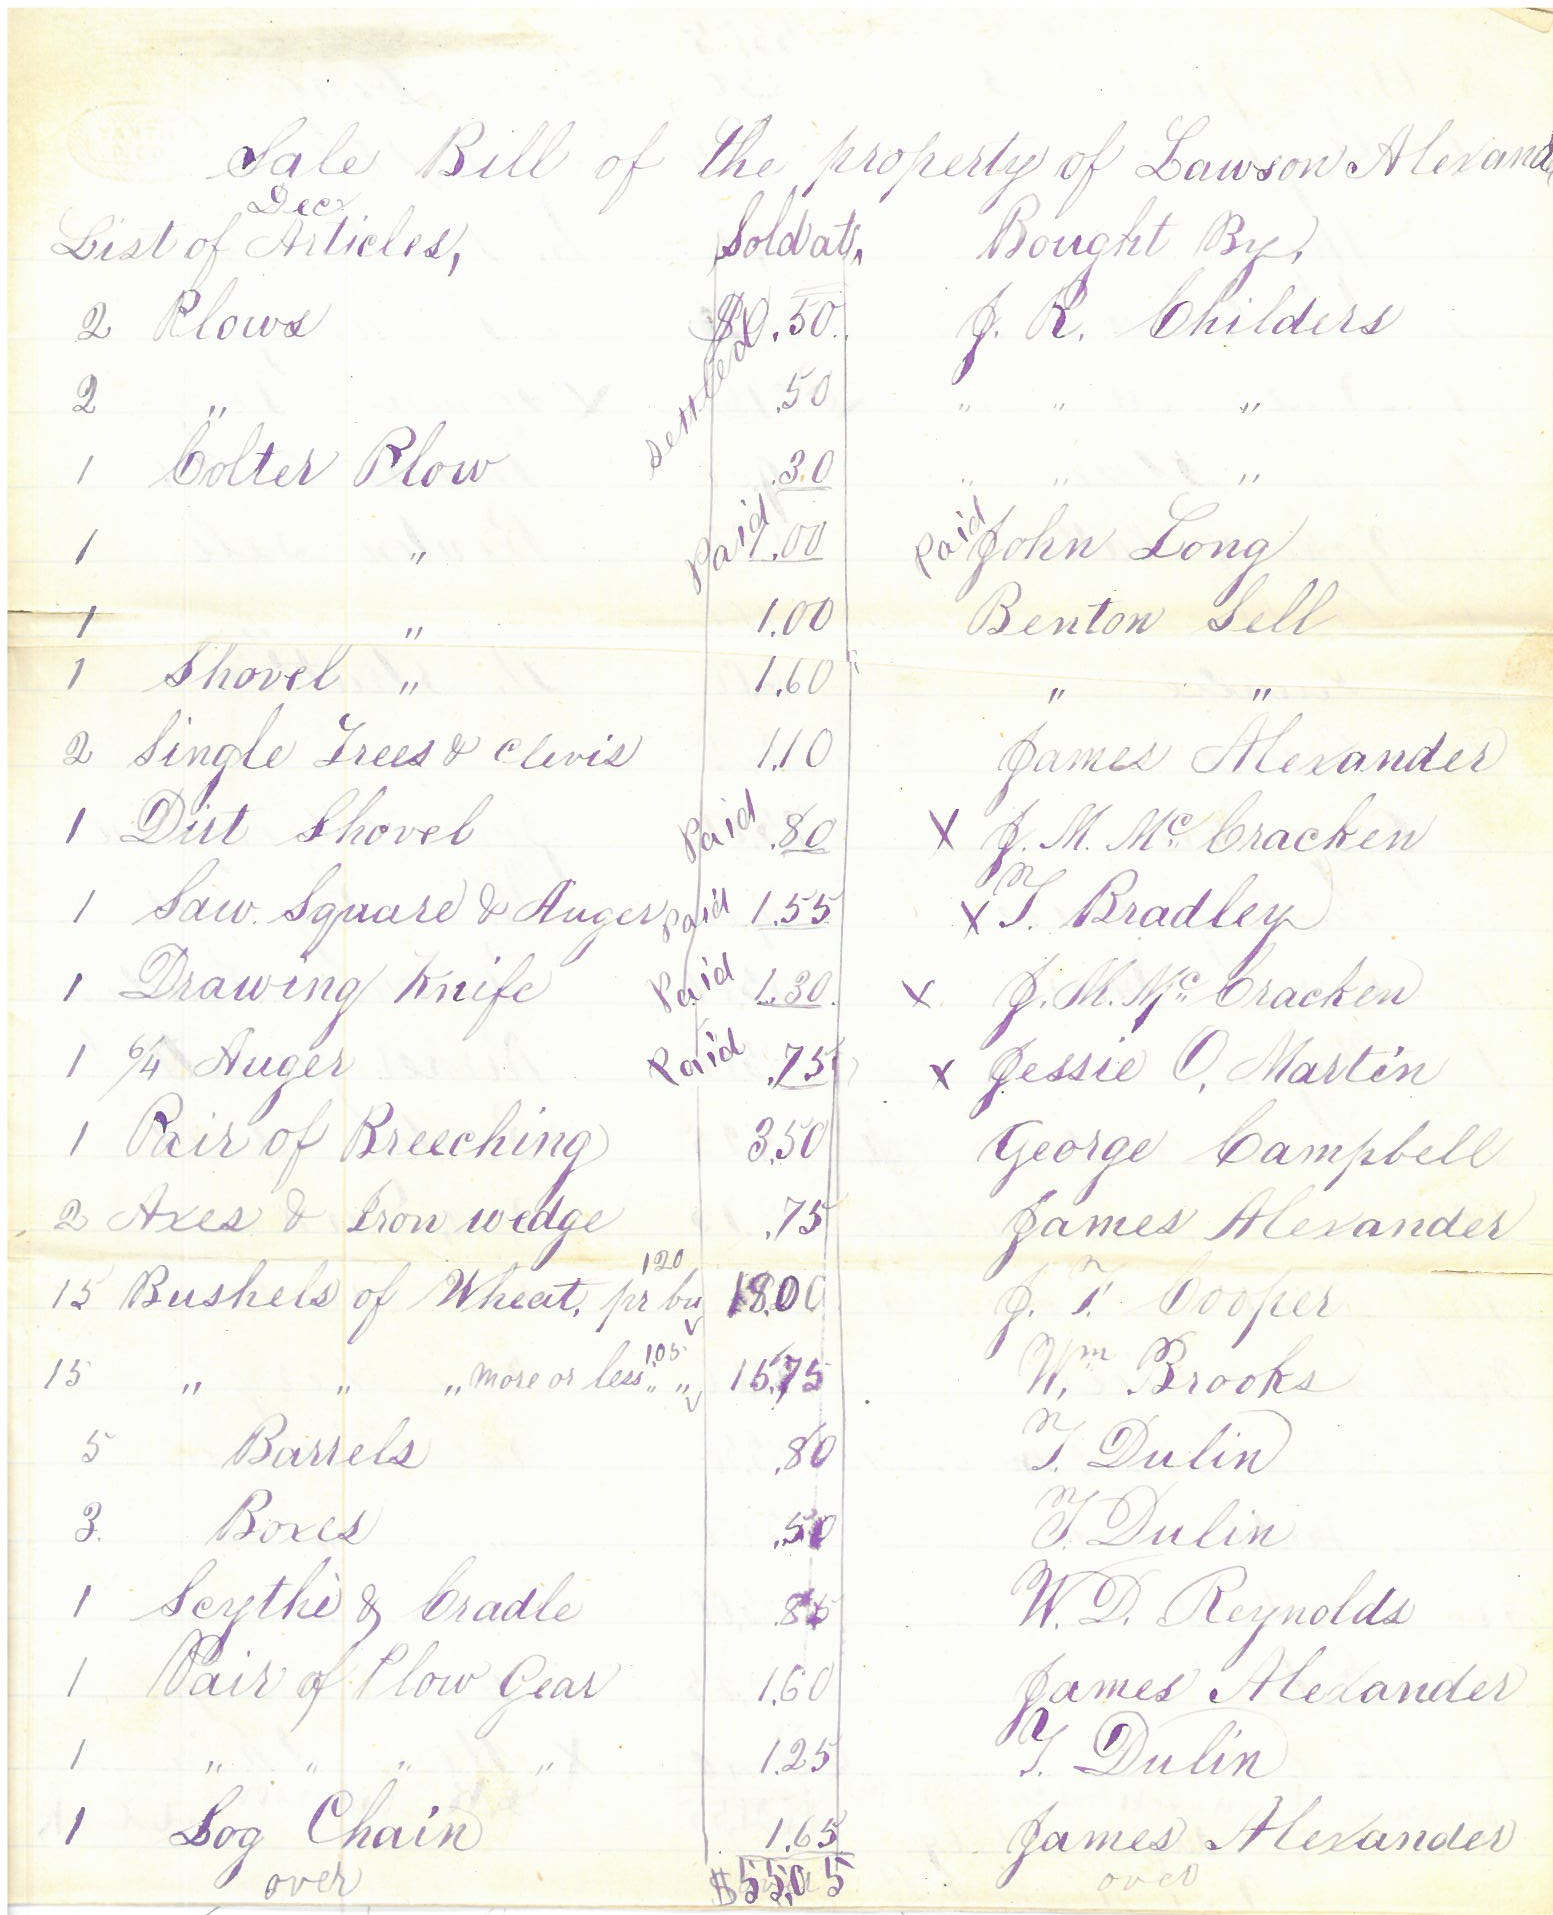 Sale Bill of the property of Lawson Alexand
Dec
List of Articles, Sold at, Bought By,
2 Plows $0.50 J. R. Childers
settled
2 " .50 " " "
1 Colter Plow .30 " " "
1 " Paid 1.00 Paid John Long
1 " 1.00 Benton Sell
1 Shovel " 1.60 " "
2 Single Trees & Clevis 1.10 James Alexander
1 Dirt Shovel Paid .80 X J. M. Mc Cracken
1 Saw. Square & Auger Paid 1.55 X T. Bradley
1 Drawing Knife Paid 1.30 X J. M. Mc Cracken
1 6/4 Auger Paid .75 X Jessie O, Martin
1 Pair of Breeching 3.50 George Campbell
2 Axes & Iron wedge .75 James Alexander
15 Bushels of Wheat, 120 pr bu 18.00 J. T. Cooper
15 " " " more or less 105 " " 15.75 Wm Brooks
5 Barrels .80 T. Dulin
3. Boxes .50 T. Dulin
1 Scythe & Cradle .85 W. D. Reynolds
1 Pair of Plow Gear 1.60 James Alexander
1 " " " " 1.25 T. Dulin
1 Log Chain 1.65 James Alexander
over $55.05 over